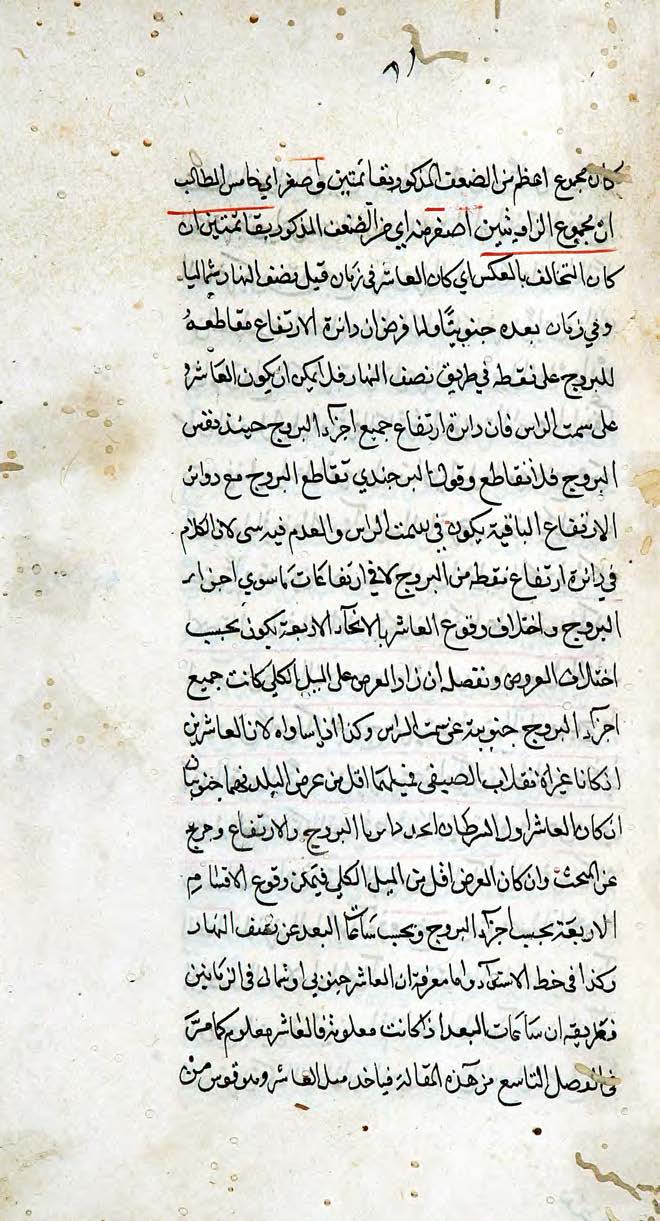 كان مجموع اعظم من الضعف المذكور بقائمتين واصغر اي خامس المطالب
ان مجموع الزاويتين اصغر منه اي من الضعف المذكور بقائمتين ان
كان التخالف بالعكس اي كان العاشر في زمان قبل نصف النهار شماليا
وفي زمان بعده جنوبيا ولما فرض ان دائرة الارتفاع مقاطعة
للبروج على نقطة في طريق نصف النهار فلا يمكن ان يكون العاشر
على سمت الراس فان دائرة ارتفاع جميع اجزاء البروج حينئذ نفس
البروج فلا تقاطع وقول البرجندي تقاطع البروج مع دوائر
الارتفاع الباقية يكون في سمت الراس والعدم فيه سى لان الكلام
في دائرة ارتفاع نقطة من البروج لا في ارتفاعات ما سوي اجزاء
البروج واختلاف وقوع العاشر بالانحاء الاربعة يكون بحسب
اختلاف العروض ونفصله ان زاد العرض على الميل الكلي كانت جميع
اجزاء البروج جنوبية عن سمت الراس وكذا اذا ساواه لان العاشرين
اذ كانا غير الانقلاب الصيفي فميلهما اقل من عرض البلد فهما جنوبيان
ان كان العاشر اول السرطان اتحد دائرتا البروج والارتفاع وخرج
عن البحث وان كان العرض اقل من الميل الكلي فيمكن وقوع الاقسام
الاربعة بحسب اجزاء البروج وبحسب ساعات البعد عن نصف النهار
وكذا في خط الاستواء واما معرفة ان العاشر جنوبي او شمالي في الزمانين
فطريقه ان ساعات البعد اذا كانت معلومة فالعاشر معلوم كما مر
في الفصل التاسع من هذه المقالة فياخذ ميل العاشر وهو قوس من